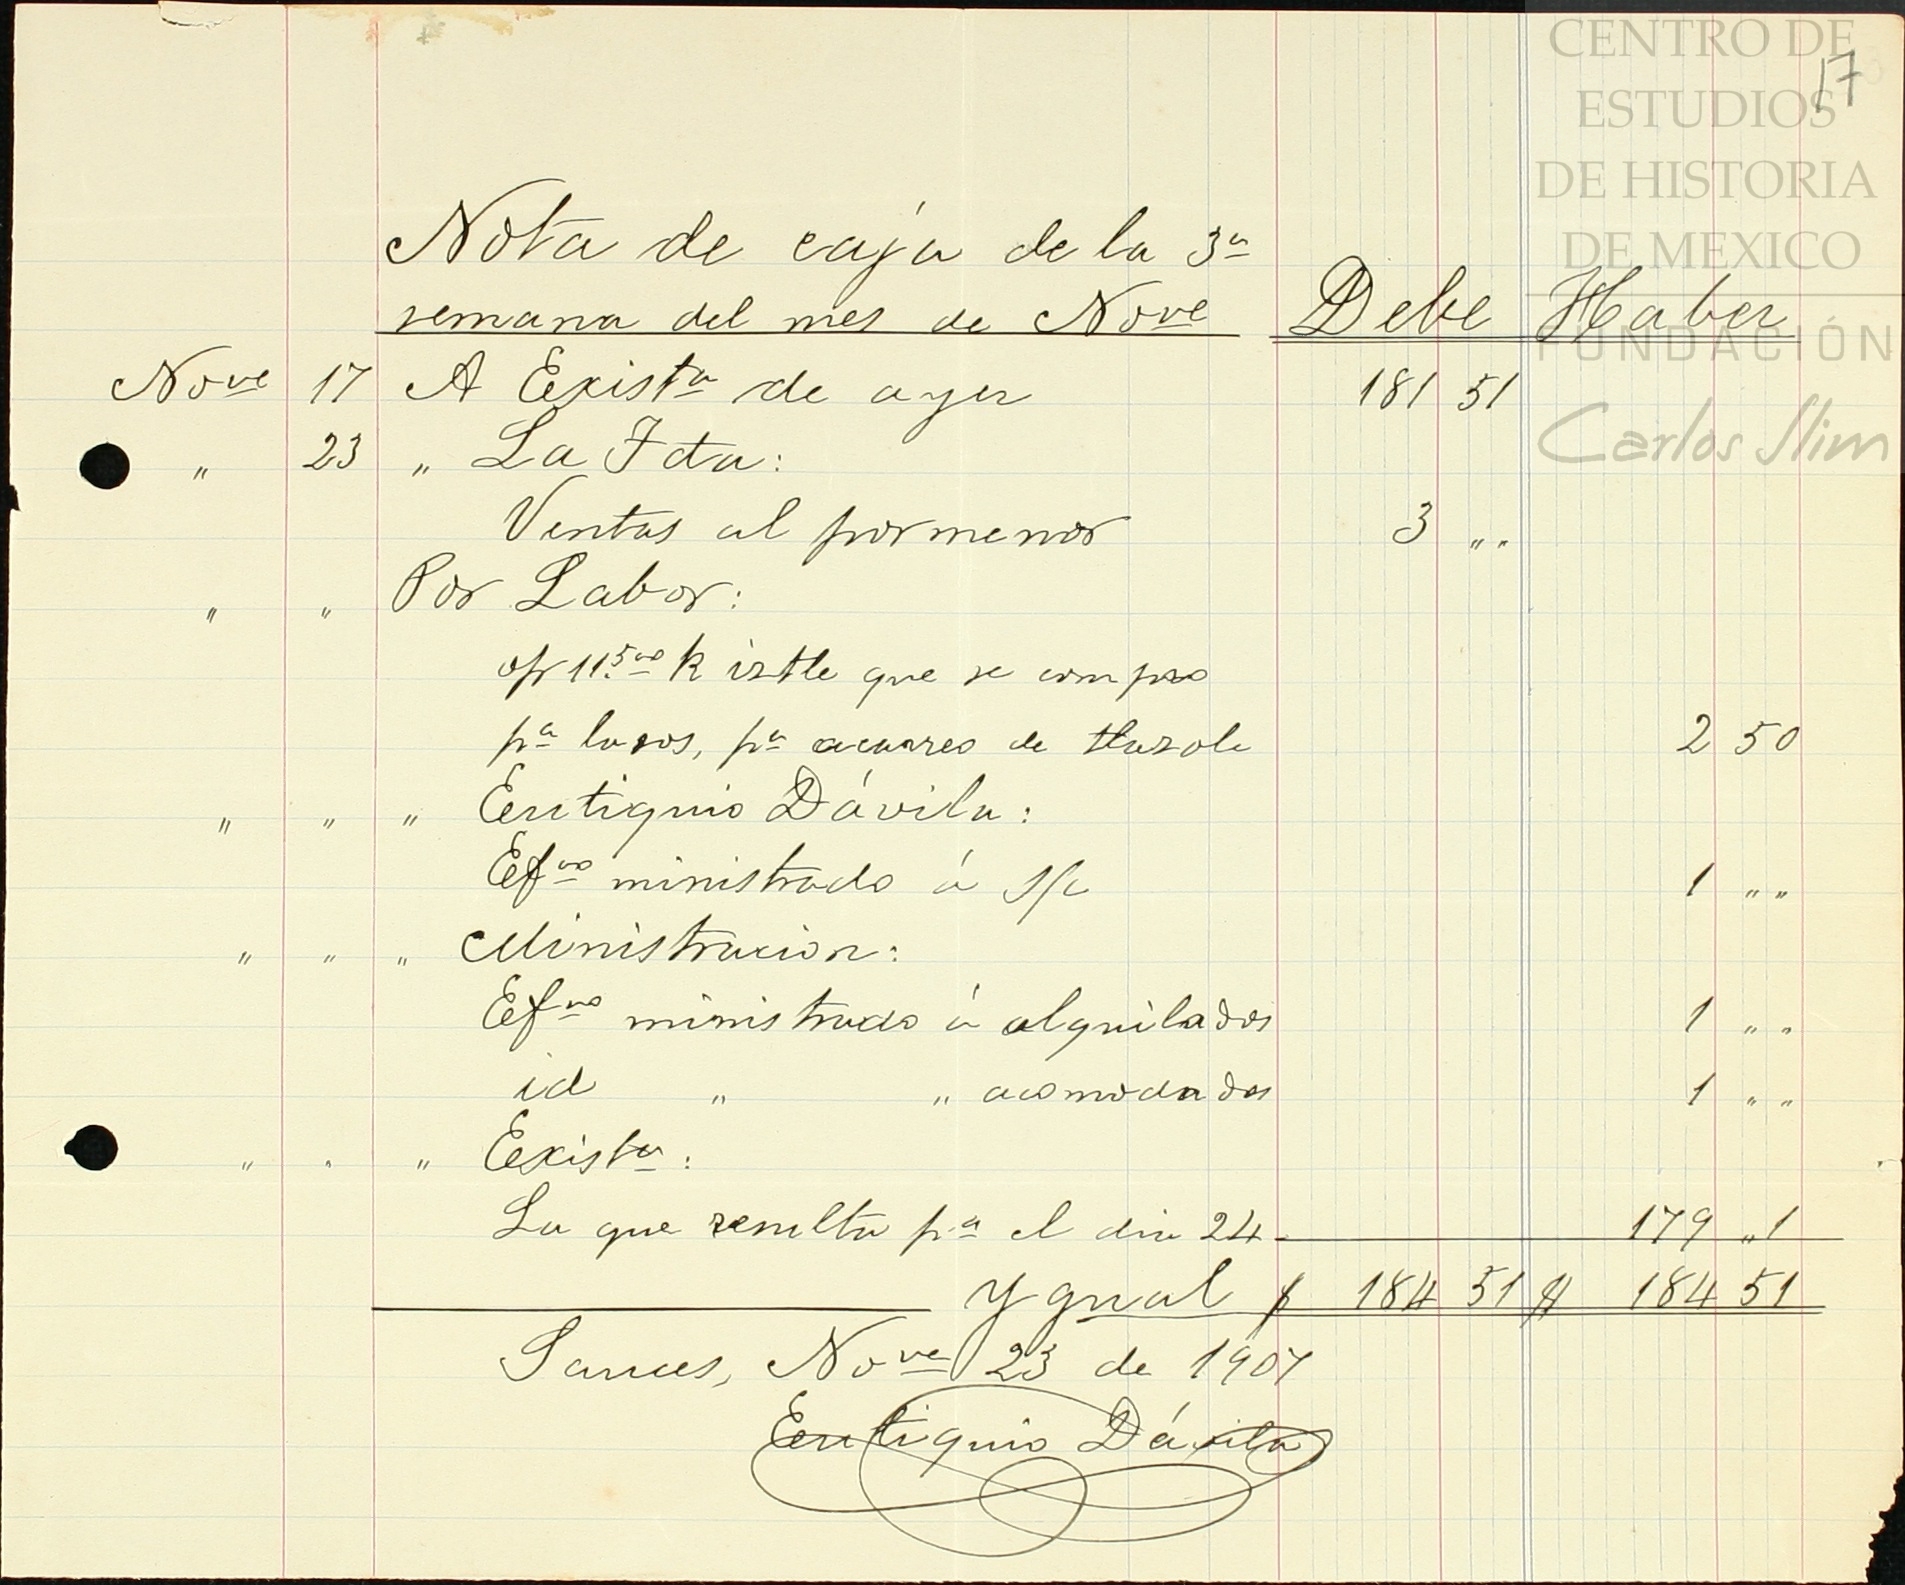 CENTRO DE
ESTUDIOS
DE HISTORIA
DE MEXICO
FUNDACIÓN
Carlos Slim
17
Nota de caja de la 3ª
semana del mes de Nove Debe Haber
Nove 17 A Existª de ayer 181 51
" 23 " La Fda:
Ventas al pormenor 3 " "
" " Por Labor:
11.500 k ixtle que se compro
pª lasos, pª acarreo de tlazole 2 50
" " " Eutiquio Dávila:
Efvo ministrado á s/c 1 " "
" " " Ministracion:
Efvo ministrado á alquilados 1 " "
id " " acomodados 1 " "
" " " Existª:
La que resulta pª el dia 24 179 "1
Ygual $ 184 51 $ 184 51
Sauces, Nove 23 de 1907
Eutiquio Dávila